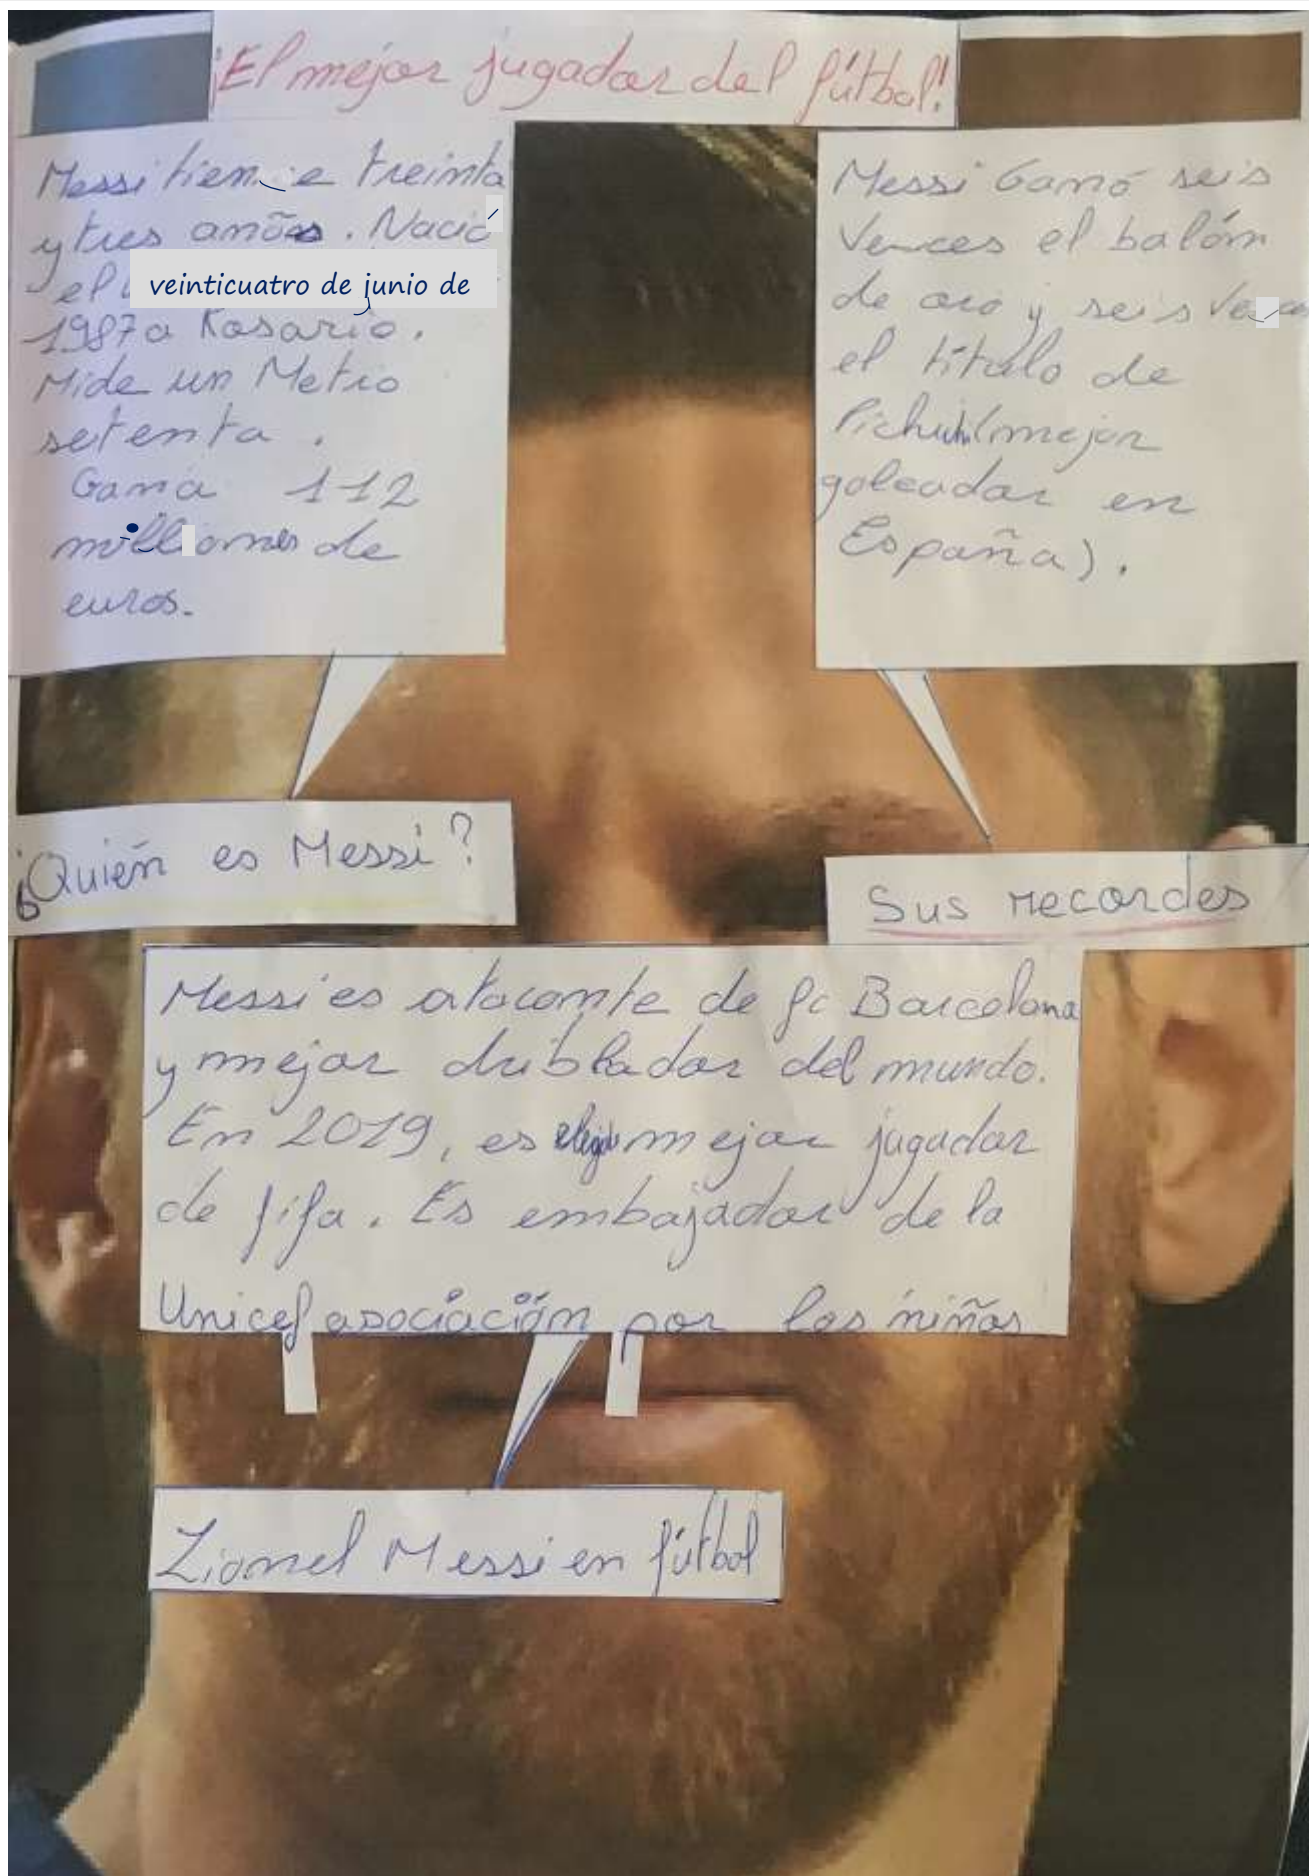 ¡El mejor jugador del fútbol!
Messi tiene treinta
y tres anõs. Nació
el veinticuatro de junio de
1987 a Rosario.
Mide un Metro
setenta.
Gana 112
milliones de
euros.
¿Quién es Messi?
Messi Ganó seis
Veces el balón
de oro y seis Veces
el título de
Pichichi (mejor
goleador en
España).
Sus recordes
Messi es atacante de fc Barcelona
y mejor driblador del mundo.
En 2019, es elegido mejor jugador
de fifa. Es embajador de la
Unicef asociación por los niños
Lionel Messi en fútbol